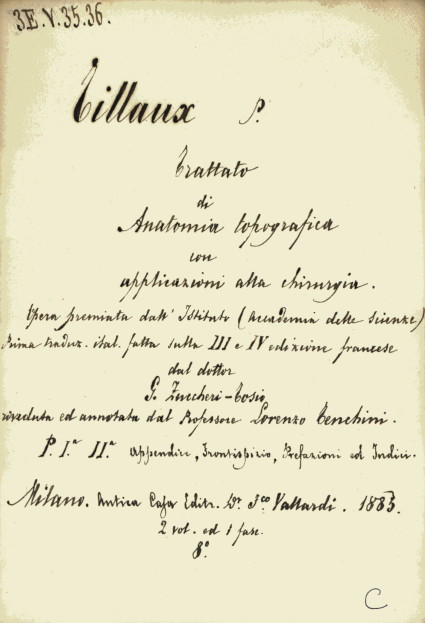 3.E.V.35.36.
Tillaux P.
Trattato
di
Anatomia topografica
con
applicazioni alla chirurgia.
Opera premiata dall' Istituto (Accademia delle Scienze)
Prima traduz. ital. fatta sulla III e IV edizione francese
dal dottor
G. Zuccheri-Tosio
riveduta ed annotata dal Professore Lorenzo Tenchini.
P. I.ª II.ª Appendice, Frontispizio, Prefazioni ed Indici.
Milano. Antica Casa Editr. Dr. F.co Vallardi. 1883.
2 vol. ed 1 fasc.
8.º
C